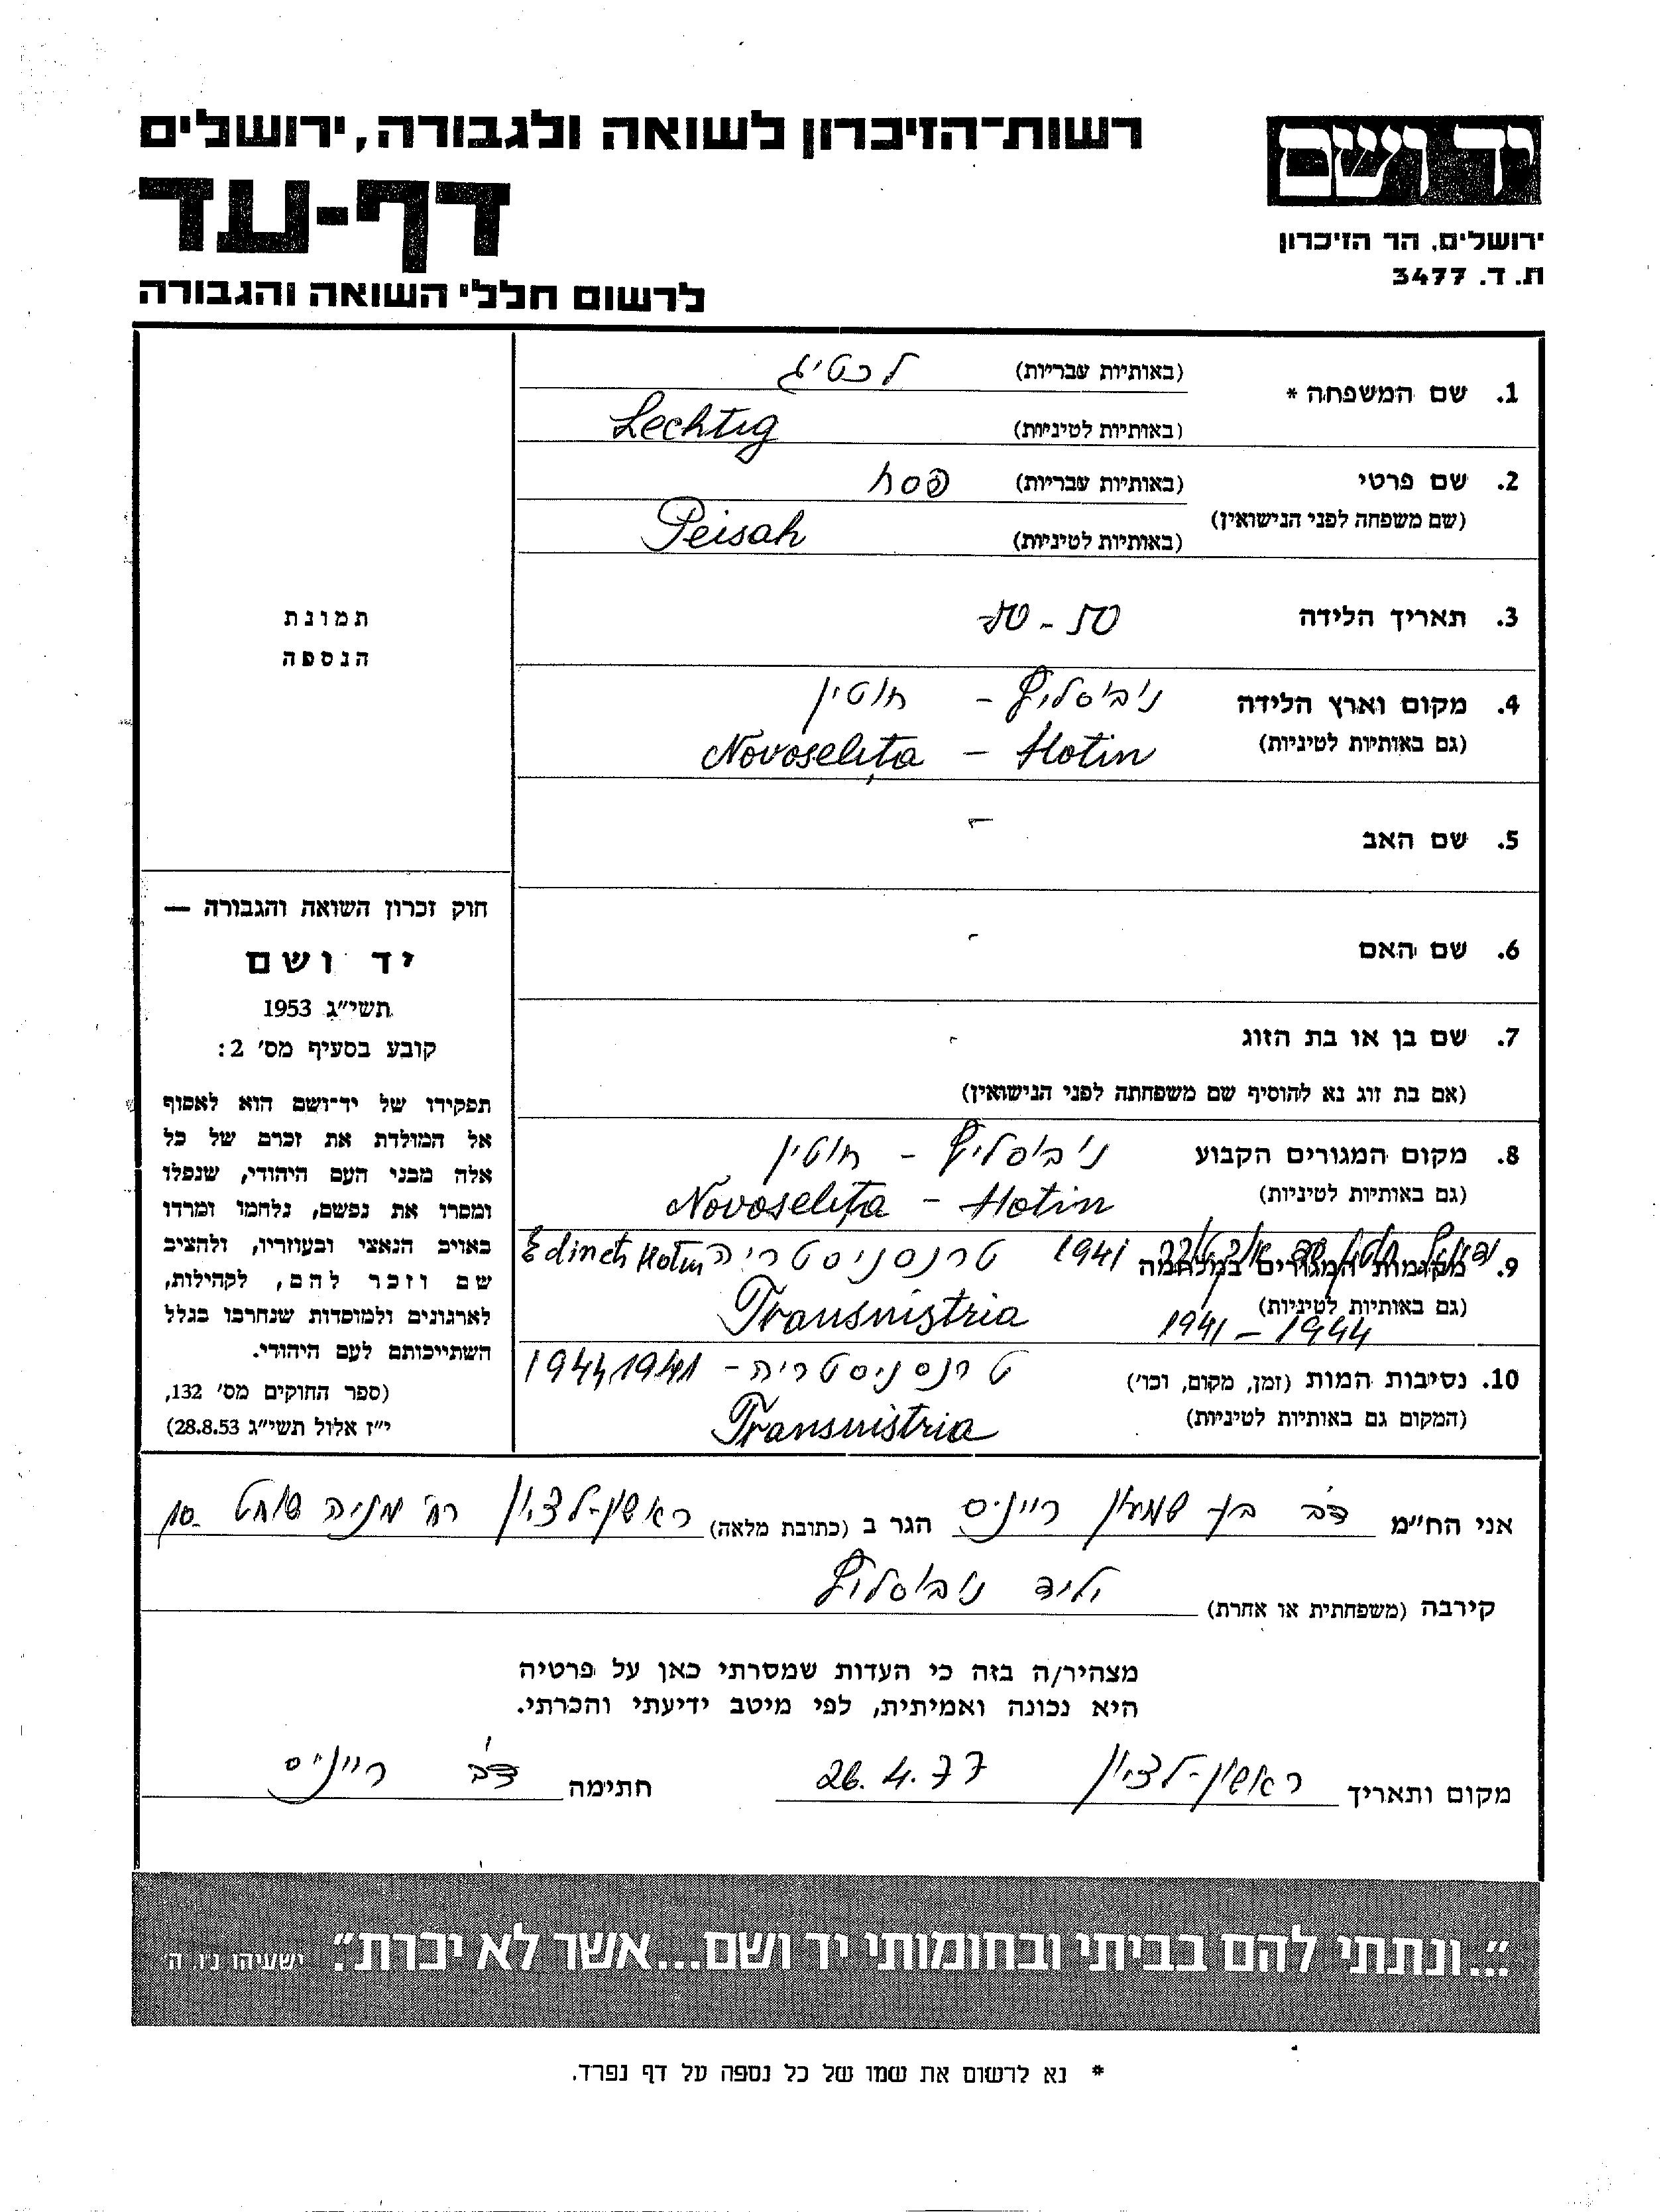 רשות־הזיכרון לשואה ולגבורה, ירושלים
יד ושם
דף-עד
ירושלים, הר הזיכרון
ת. ד. 3477
לרשום חללי השואה והגבורה
1. שם המשפחה * (באותיות עבריות) לכטיג
(באותיות לטיניות) Lechtig
2. שם פרטי (באותיות עבריות) פסח
(שם משפחה לפני הנישואין) (באותיות לטיניות) Peisah
תמונת
הנספה
3. תאריך הלידה
4. מקום וארץ הלידה נוי ביסליץ - חוטין
(גם באותיות לטיניות) Novoseliţa - Hotin
5. שם האב -
6. שם האם -
7. שם בן או בת הזוג -
(אם בת זוג נא להוסיף שם משפחתה לפני הנישואין)
8. מקום המגורים הקבוע נוי ביסליץ - חוטין
(גם באותיות לטיניות) Novoseliţa - Hotin
9. מקומות המגורים במלחמה 1941 טרנסניסטריה Edineti Hotin
(גם באותיות לטיניות) 1941 - 1944 Transnistria
10. נסיבות המות (זמן, מקום, וכו') טרנסניסטריה - 1941 1944
(המקום גם באותיות לטיניות) Transnistria
חוק זכרון השואה והגבורה —
יד ושם
תשי"ג 1953
קובע בסעיף מס' 2:
תפקידו של יד־ושם הוא לאסוף
אל המולדת את זכרם של כל
אלה מבני העם היהודי, שנפלו
ומסרו את נפשם, נלחמו ומרדו
באויב הנאצי ובעוזריו, ולהציב
שם וזכר להם, לקהילות,
לארגונים ולמוסדות שנחרבו בגלל
השתייכותם לעם היהודי.
(ספר החוקים מס' 132,
י"ז אלול תשי"ג 28.8.53)
אני הח"מ דב בן שמעון ריינים הגר ב (כתובת מלאה) ראשון-לציון רח' מניה שוחט
קירבה (משפחתית או אחרת) יליד נוי ביסליץ
מצהיר/ה בזה כי העדות שמסרתי כאן על פרטיה
היא נכונה ואמיתית, לפי מיטב ידיעתי והכרתי.
מקום ותאריך ראשון-לציון 26.4.77 חתימה דב ריינים
"...ונתתי להם בביתי ובחומותי יד ושם...אשר לא יכרת". ישעיהו נ"ו, ה'
* נא לרשום את שמו של כל נספה על דף נפרד.